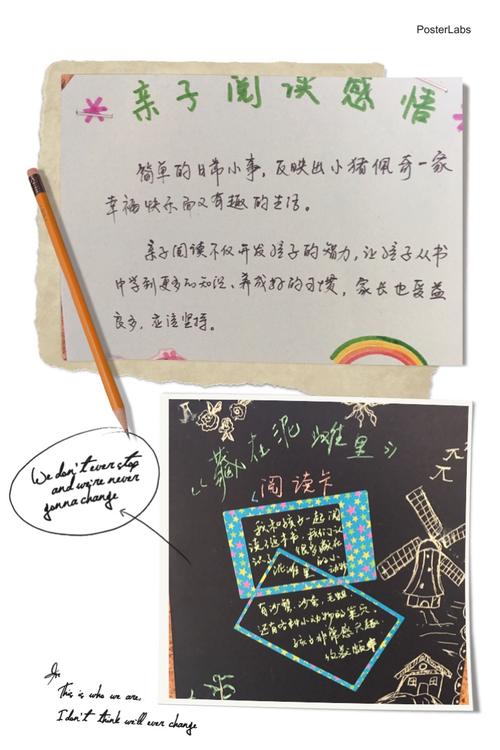 PosterLabs
亲子阅读感悟
简单的日常小事，反映出小猪佩奇一家
幸福快乐而又有趣的生活。
亲子阅读不仅开发孩子的智力，让孩子从书
中学到更多的知识、养成好的习惯，家长也受益
良多，应该坚持。
We don't ever stop
and we're never
gonna change
《藏在泥滩里》
阅读卡
我和孩子一起阅
读了这本书，我们
认识 很多藏在
泥滩里的小动物
有沙蟹、
还有各种小动物的巢穴
孩子非常感兴趣
This is who we are.
I don't think will ever change